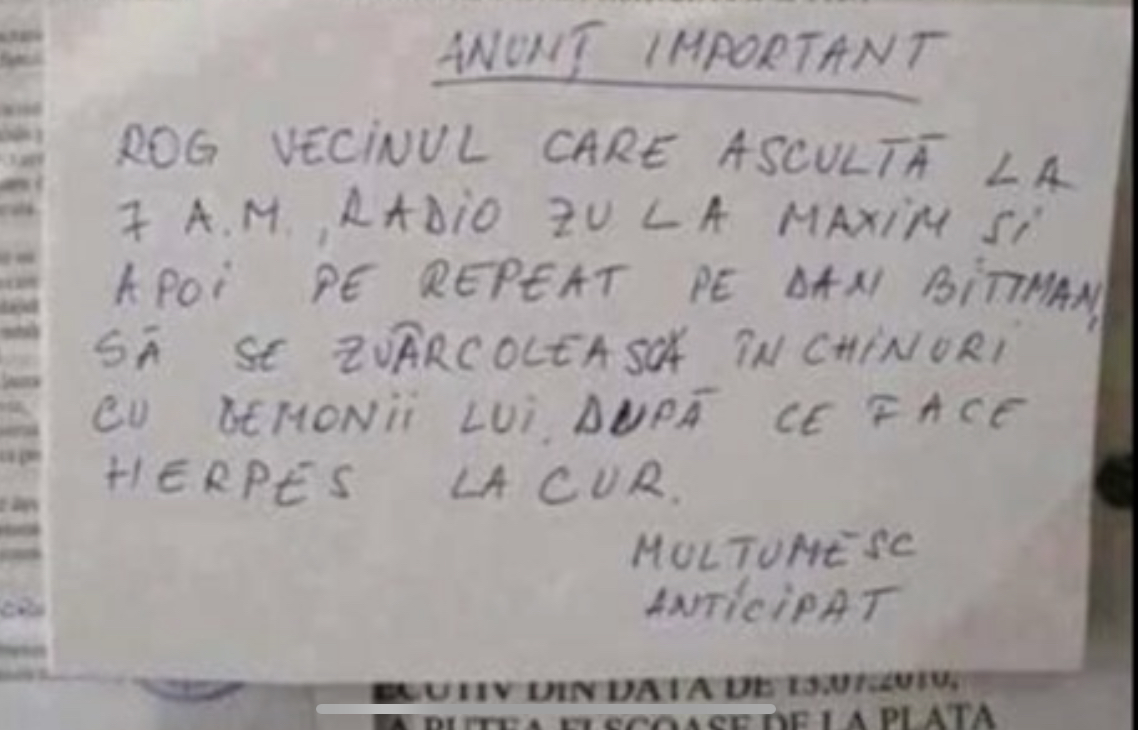 ANUNȚ IMPORTANT
ROG VECINUL CARE ASCULTĂ LA
7 A.M., RADIO ZU LA MAXIM SI
APOI PE REPEAT PE DAN BITTMAN,
SĂ SE ZVÂRCOLEASCĂ ÎN CHINURI
CU DEMONII LUI. DUPĂ CE FACE
HERPES LA CUR.
MULTUMESC
ANTICIPAT
ECUTIV DIN DATA DE 13.07.2010,
A PUTEA FI SCOASE DE LA PLATA